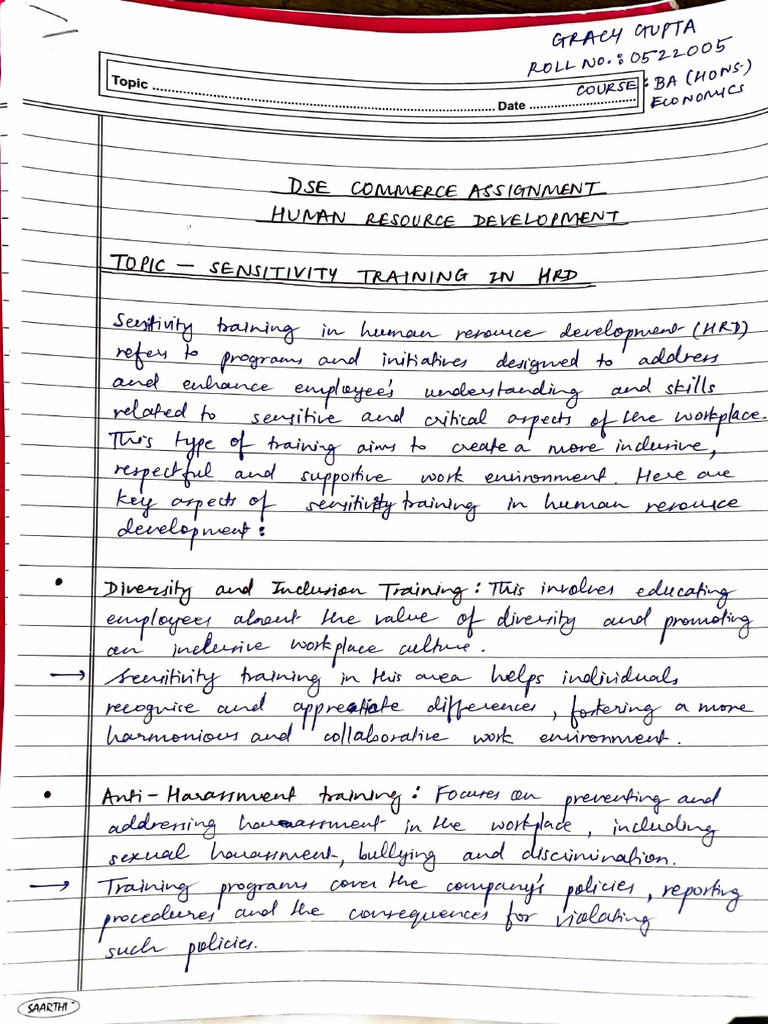 GRACY GUPTA
ROLL NO.: 0522005
COURSE: BA (HONS.)
ECONOMICS
Topic
Date
DSE COMMERCE ASSIGNMENT
HUMAN RESOURCE DEVELOPMENT
TOPIC — SENSITIVITY TRAINING IN HRD
Sensitivity training in human resource development (HRD)
refers to programs and initiatives designed to address
and enhance employee's understanding and skills
related to sensitive and critical aspects of the workplace.
This type of training aims to create a more inclusive,
respectful and supportive work environment. Here are
key aspects of sensitivity training in human resource
development:
• Diversity and Inclusion Training: This involves educating
employees about the value of diversity and promoting
an inclusive workplace culture.
→ Sensitivity training in this area helps individuals
recognise and appreciate differences, fostering a more
harmonious and collaborative work environment.
• Anti-Harassment training: Focuses on preventing and
addressing harassment in the workplace, including
sexual harassment, bullying and discrimination.
→ Training programs cover the company's policies, reporting
procedures and the consequences for violating
such policies.
SAARTHI